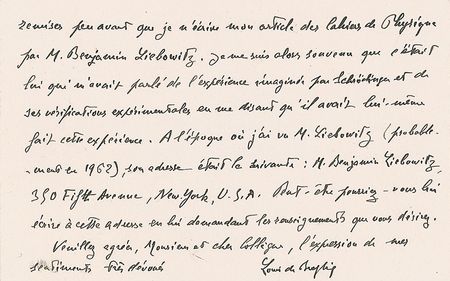 remises peu avant que je n'écrive mon article des Cahiers de Physique
par M. Benjamin Liebowitz. Je me suis alors souvenu que c'était
lui qui m'avait parlé de l'expérience imaginée par Schrödinger et de
ses vérifications expérimentales en me disant qu'il avait lui-même
fait cette expérience. A l'époque où j'ai vu M. Liebowitz (probable-
ment en 1962), son adresse était la suivante : M. Benjamin Liebowitz,
350 Fifth Avenue, New York, U.S.A. Peut-être pourriez-vous lui
écrire à cette adresse en lui demandant les renseignements que vous désirez.
Veuillez agréer, Monsieur et cher Collègue, l'expression de mes
sentiments très dévoués
Louis de Broglie